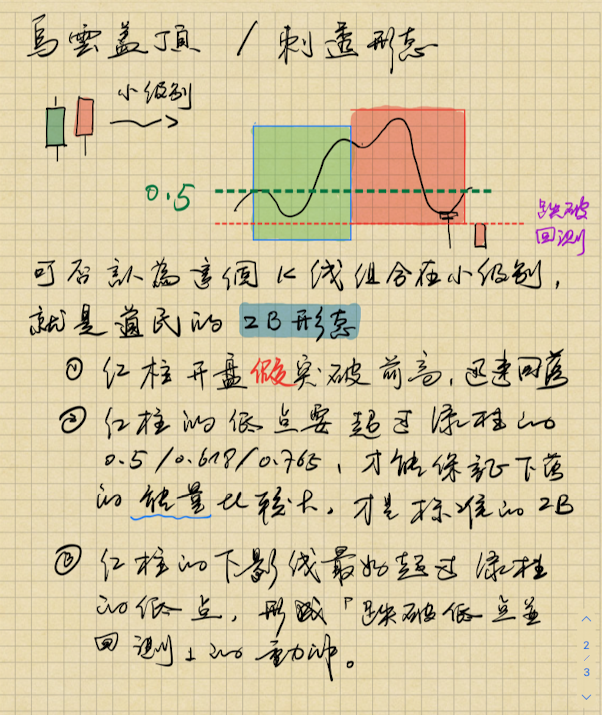 烏雲盖頂 / 刺透形态
小级别
0.5
跌破
回测
可否訤為這個K线组合在小级别,
就是道氏的 2B形态
① 红柱开盘假突破前高, 迅速回落
② 红柱的低点要超过绿柱的
0.5/0.618/0.765, 才能保証下落
的能量比較大, 才是标准的2B
③ 红柱的下影线最好超过绿柱
的低点, 形成「跌破低点並
回测」的動
2
/
3